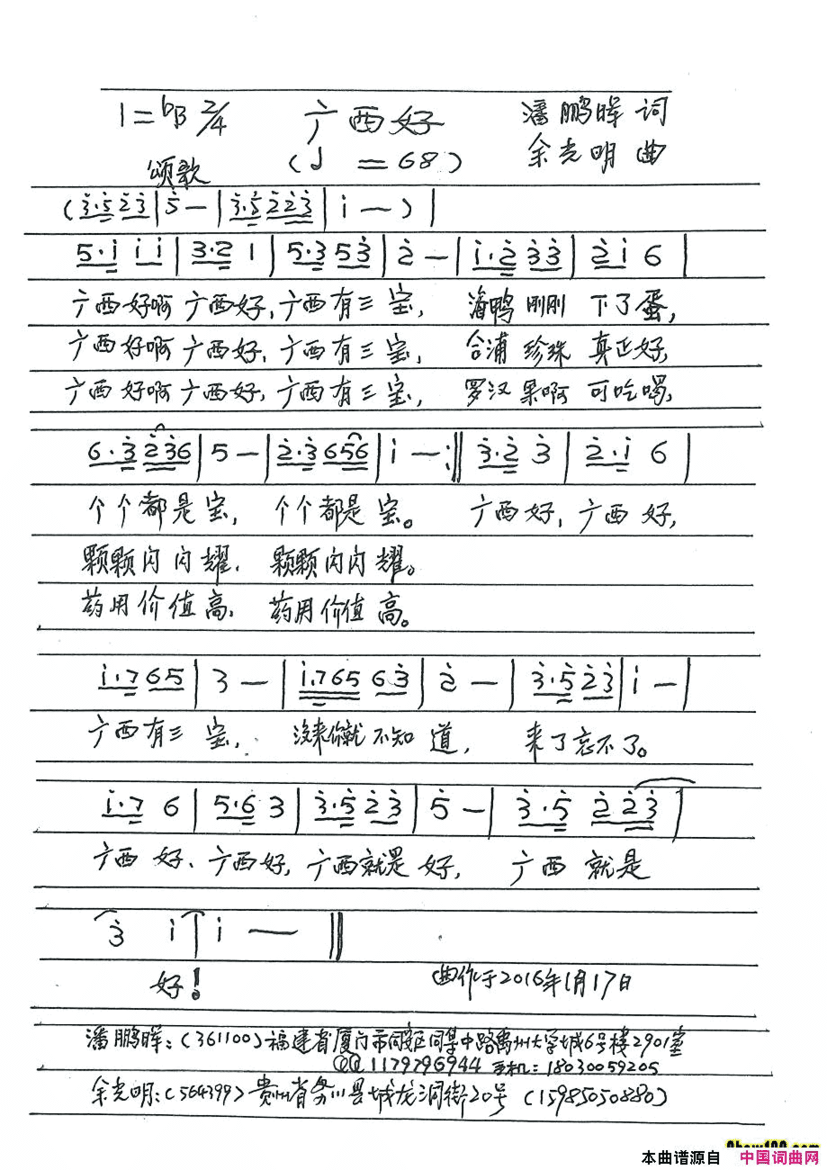 1=♭B 2/4 广西好 潘鹏晖 词
颂歌 (♩=68) 余光明 曲
(3̇·5̇ 2̇3̇|5̇ —|3̇·5̇ 2̇2̇3̇|i —)|
5·i i i|3·2 1|5·3 5 3̇|2̇ —|i·2̇ 3̇3̇|2̇ i 6|
广西好啊 广西好,广西有三宝, 海鸭刚刚 下了蛋,
广西好啊 广西好,广西有三宝, 合浦珍珠 真正好,
广西好啊 广西好,广西有三宝, 罗汉果啊 可吃喝,
6·3̇ 2̇3̇6|5 —|2̇·3̇ 656|i —:‖3̇·2̇ 3̇|2̇·i 6|
个个都是宝, 个个都是宝。 广西好,广西好,
颗颗闪闪耀, 颗颗闪闪耀。
药用价值高, 药用价值高。
i·7 65|3 —|i·765 63̇|2̇ —|3̇·5̇ 2̇3̇|i —|
广西有三宝, 没来你就不知道, 来了忘不了。
i·7 6|5·6 3|3̇·5̇ 2̇3̇|5̇ —|3̇·5̇ 2̇2̇3̇|
广西好、广西好,广西就是好, 广西就是
3̇ i|i —‖
好! 曲作于2016年1月17日
潘鹏晖:(361100)福建省厦门市同安区同集中路禹州大学城6号楼2901室
QQ1179796944 手机:18030059205
余光明:(564399)贵州省务川县城龙洞街20号(15985050880)
本曲谱源自 中国词曲网